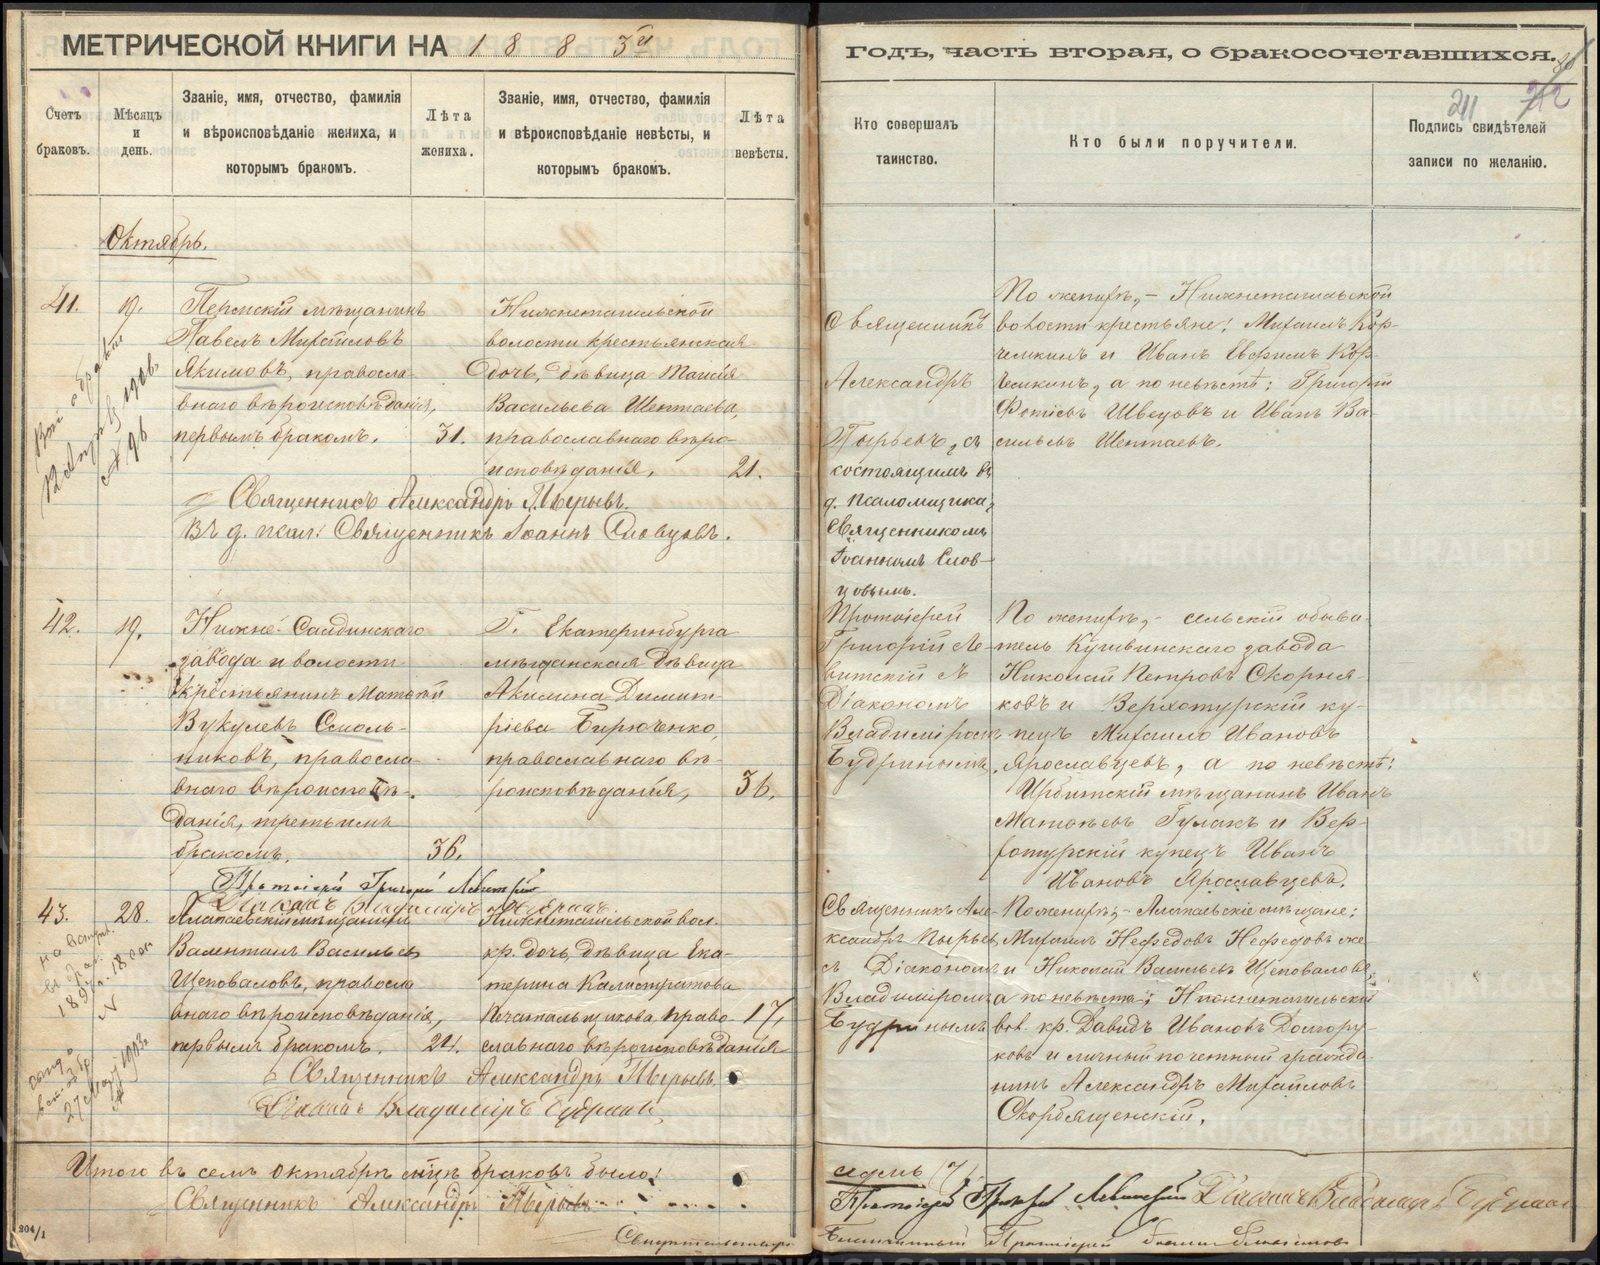 МЕТРИЧЕСКОЙ КНИГИ НА 1883й
Счетъ браковъ.
Мѣсяцъ и день.
Званіе, имя, отчество, фамилія и вѣроисповѣданіе жениха, и которымъ бракомъ.
Лѣта жениха.
Званіе, имя, отчество, фамилія и вѣроисповѣданіе невѣсты, и которымъ бракомъ.
Лѣта невѣсты.
Октябрь.
41.
19.
Пермскій мѣщанинъ
Павелъ Михайловъ
Якимовъ, правосла-
внаго вѣроисповѣданія,
первымъ бракомъ.
31.
Нижнетагильской
волости крестьянская
дочь, дѣвица Таисія
Васильева Шептаева,
православнаго вѣро-
исповѣданія,
21.
Священникъ Александръ Пырьевъ.
Въ д. псал: Священникъ Іоаннъ Словцовъ.
42.
19.
Нижне-Салдинскаго
завода и волости
крестьянинъ Матѳей
Вукуловъ Смоль-
никовъ, правосла-
внаго вѣроисповѣ-
данія, третьимъ
бракомъ.
36.
Г. Екатеринбурга
мѣщанская дѣвица
Акилина Димит-
ріева Бирюченко,
православнаго вѣ-
роисповѣданія,
36.
Протоіерей Григорій Левитскій
Діаконъ Владиміръ Будринъ
43.
28.
Алапаевскій мѣщанинъ
Валентинъ Васильевъ
Щеповаловъ, правосла
внаго вѣроисповѣданія,
первымъ бракомъ.
24.
Нижнетагильской вол.
кр. дочь, дѣвица Ека-
терина Калистратова
Печатальщикова, право-
славнаго вѣроисповѣданія
17.
Священникъ Александръ Пырьевъ
Діаконъ Владиміръ Будринъ
Итого въ семъ октябрѣ мцѣ браковъ было:
Священникъ Александръ Пырьевъ
204/1
Годъ, часть вторая, о бракосочетавшихся.
211
212
Кто совершалъ таинство.
Кто были поручители.
Подпись свидѣтелей записи по желанію.
Священникъ
Александръ
Пырьевъ, съ
состоящимъ въ
д. псаломщика,
Священникомъ
Іоанномъ Слов-
цовымъ.
По женихѣ, - Нижнетагильской
волости крестьяне: Михаилъ Кор-
чемкинъ и Иванъ Евфимъ Кор-
чемкинъ, а по невѣстѣ: Григорій
Фотіевъ Швецовъ и Иванъ Ва-
сильевъ Шептаевъ.
Протоіерей
Григорій Ле-
витскій съ
Діакономъ
Владиміромъ
Будринымъ.
По женихѣ, - сельскій обыва
тель Кушвинскаго завода
Николай Петровъ Скорня-
ковъ и Верхотурскій ку-
пецъ Михаило Ивановъ
Ярославцевъ, а по невѣстѣ:
Ирбитскій мѣщанинъ Иванъ
Матвѣевъ Гулакъ и Вер-
хотурскій купецъ Иванъ
Ивановъ Ярославцевъ.
Священникъ Але-
ксандръ Пырьевъ
съ Діакономъ
Владиміромъ
Будринымъ
По женихѣ, - Алапаевскіе мѣщане:
Михаилъ Нефедовъ Нефедовъ же
и Николай Васильевъ Щеповаловъ,
а по невѣстѣ: Нижнетагильскій
вол. кр. Давидъ Ивановъ Долгору-
ковъ и личный почетный гражда
нинъ Александръ Михайловъ
Скорбященскій.
седмь (7)
Протоіерей Григорій Левитскій Діаконъ Владиміръ Будринъ
Благочинный Протоіерей